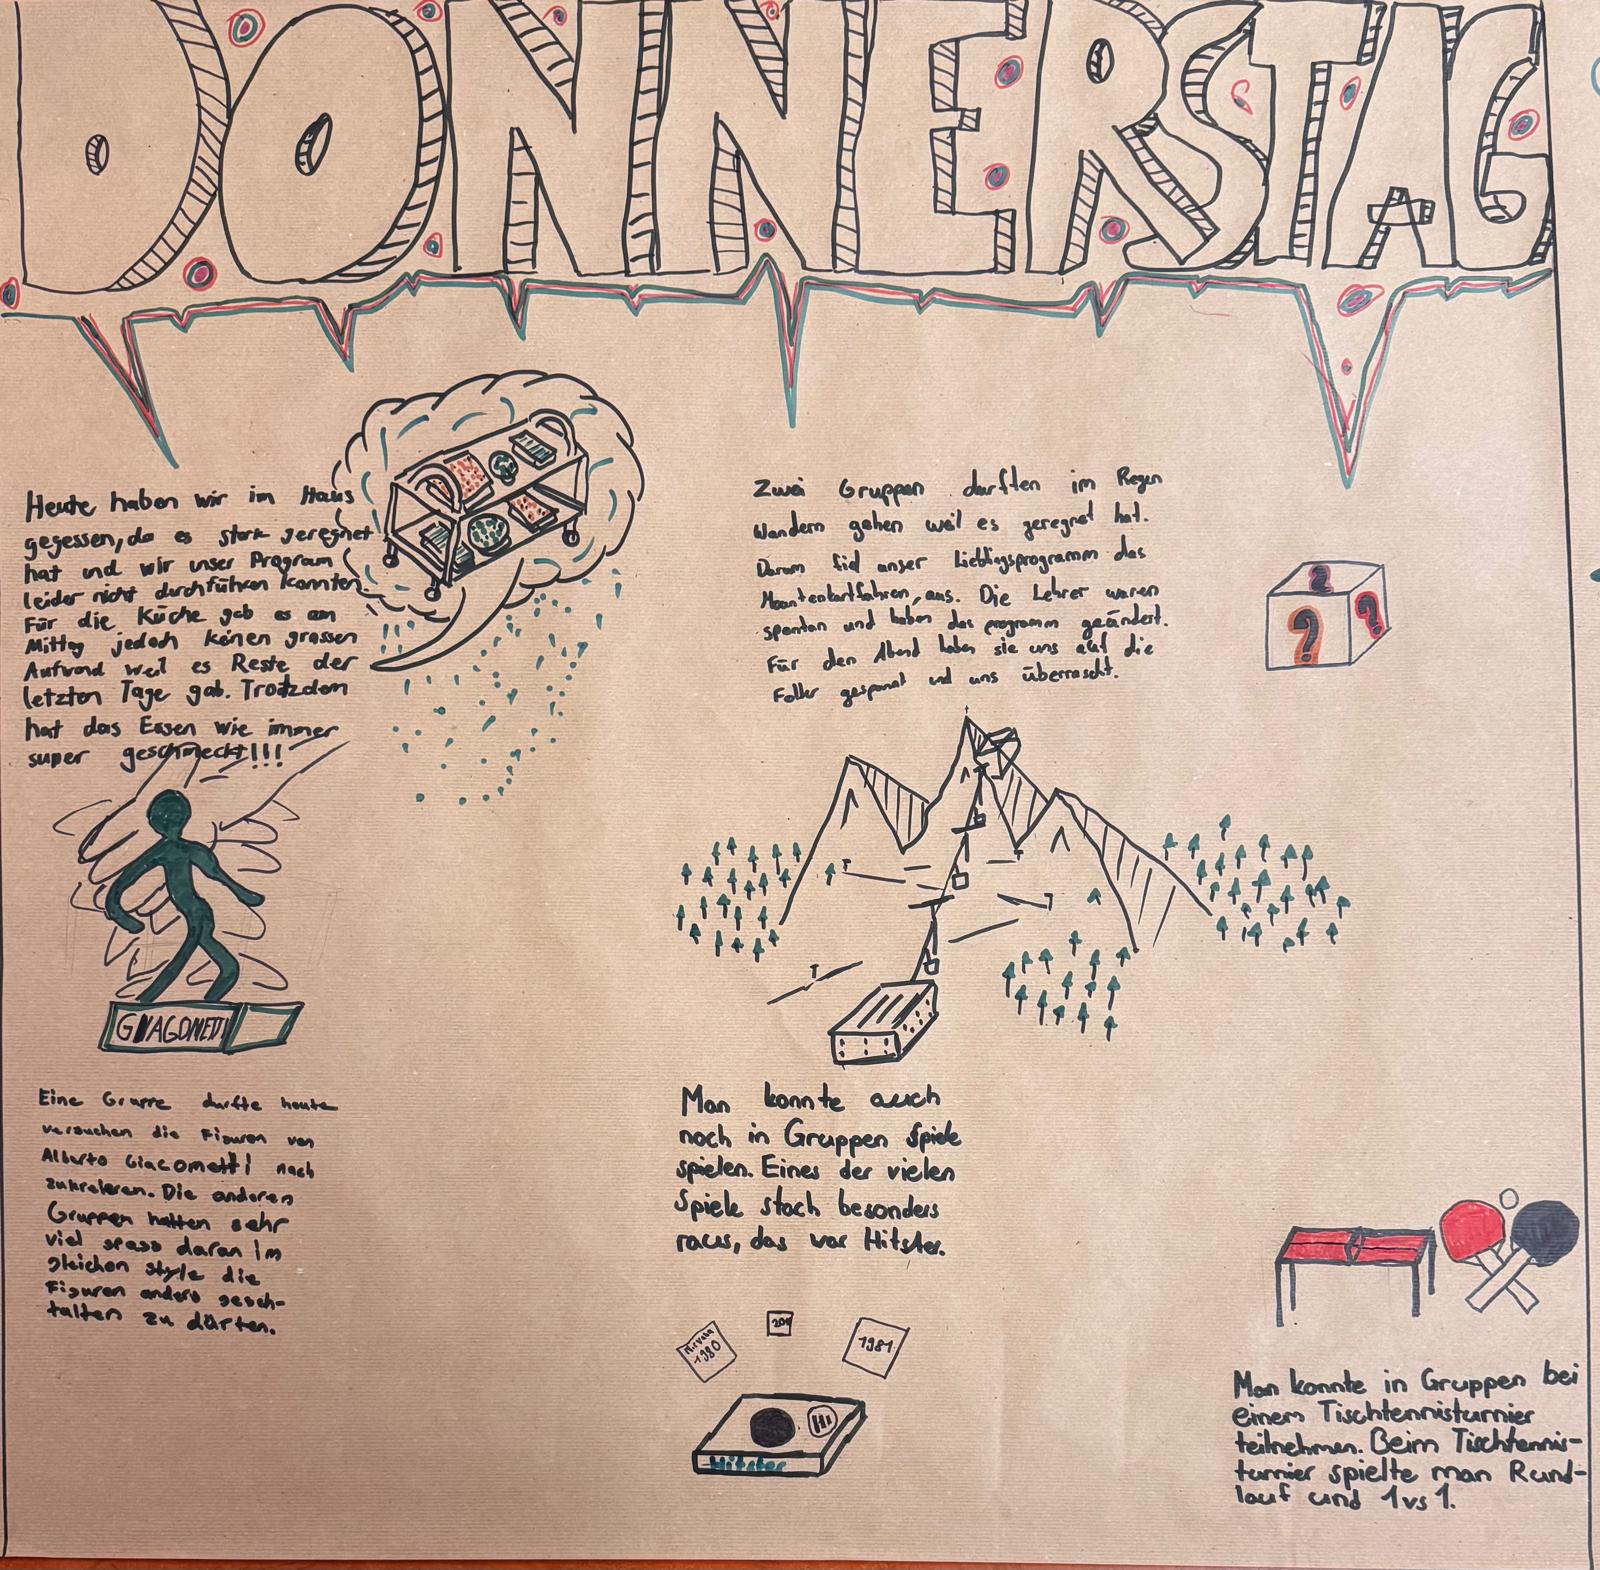 DONNERSTAG
Heute haben wir im Haus
gegessen, da es stark geregnet
hat und wir unser Program
leider nicht durchführen konnten.
Für die Küche gab es am
Mittag jedoch keinen grossen
Aufwand weil es Reste der
letzten Tage gab. Trotzdem
hat das Essen wie immer
super geschmeckt!!!
Zwei Gruppen durften im Regen
Wandern gehen weil es geregnet hat.
Darum fiel unser Lieblingsprogramm das
aus. Die Lehrer waren
spontan und haben das programm geändert.
Für den Abend haben sie uns auf die
Folter gespannt und uns überrascht.
?
?
?
GIAGOMETTI
Eine Gruppe durfte heute
versuchen die Figuren von
Alberto Giacometti nach
zukreieren. Die anderen
Gruppen hatten sehr
viel spass daran im
gleichen style die
Figuren anders gesch-
talten zu dürfen.
Man konnte auch
noch in Gruppen Spiele
spielen. Eines der vielen
Spiele stach besonders
raus, das war Hitster.
Nirvana
1980
1981
Hi
Hitster
Man konnte in Gruppen bei
einem Tischtennisturnier
teilnehmen. Beim Tischtennis-
turnier spielte man Rund-
lauf und 1vs1.